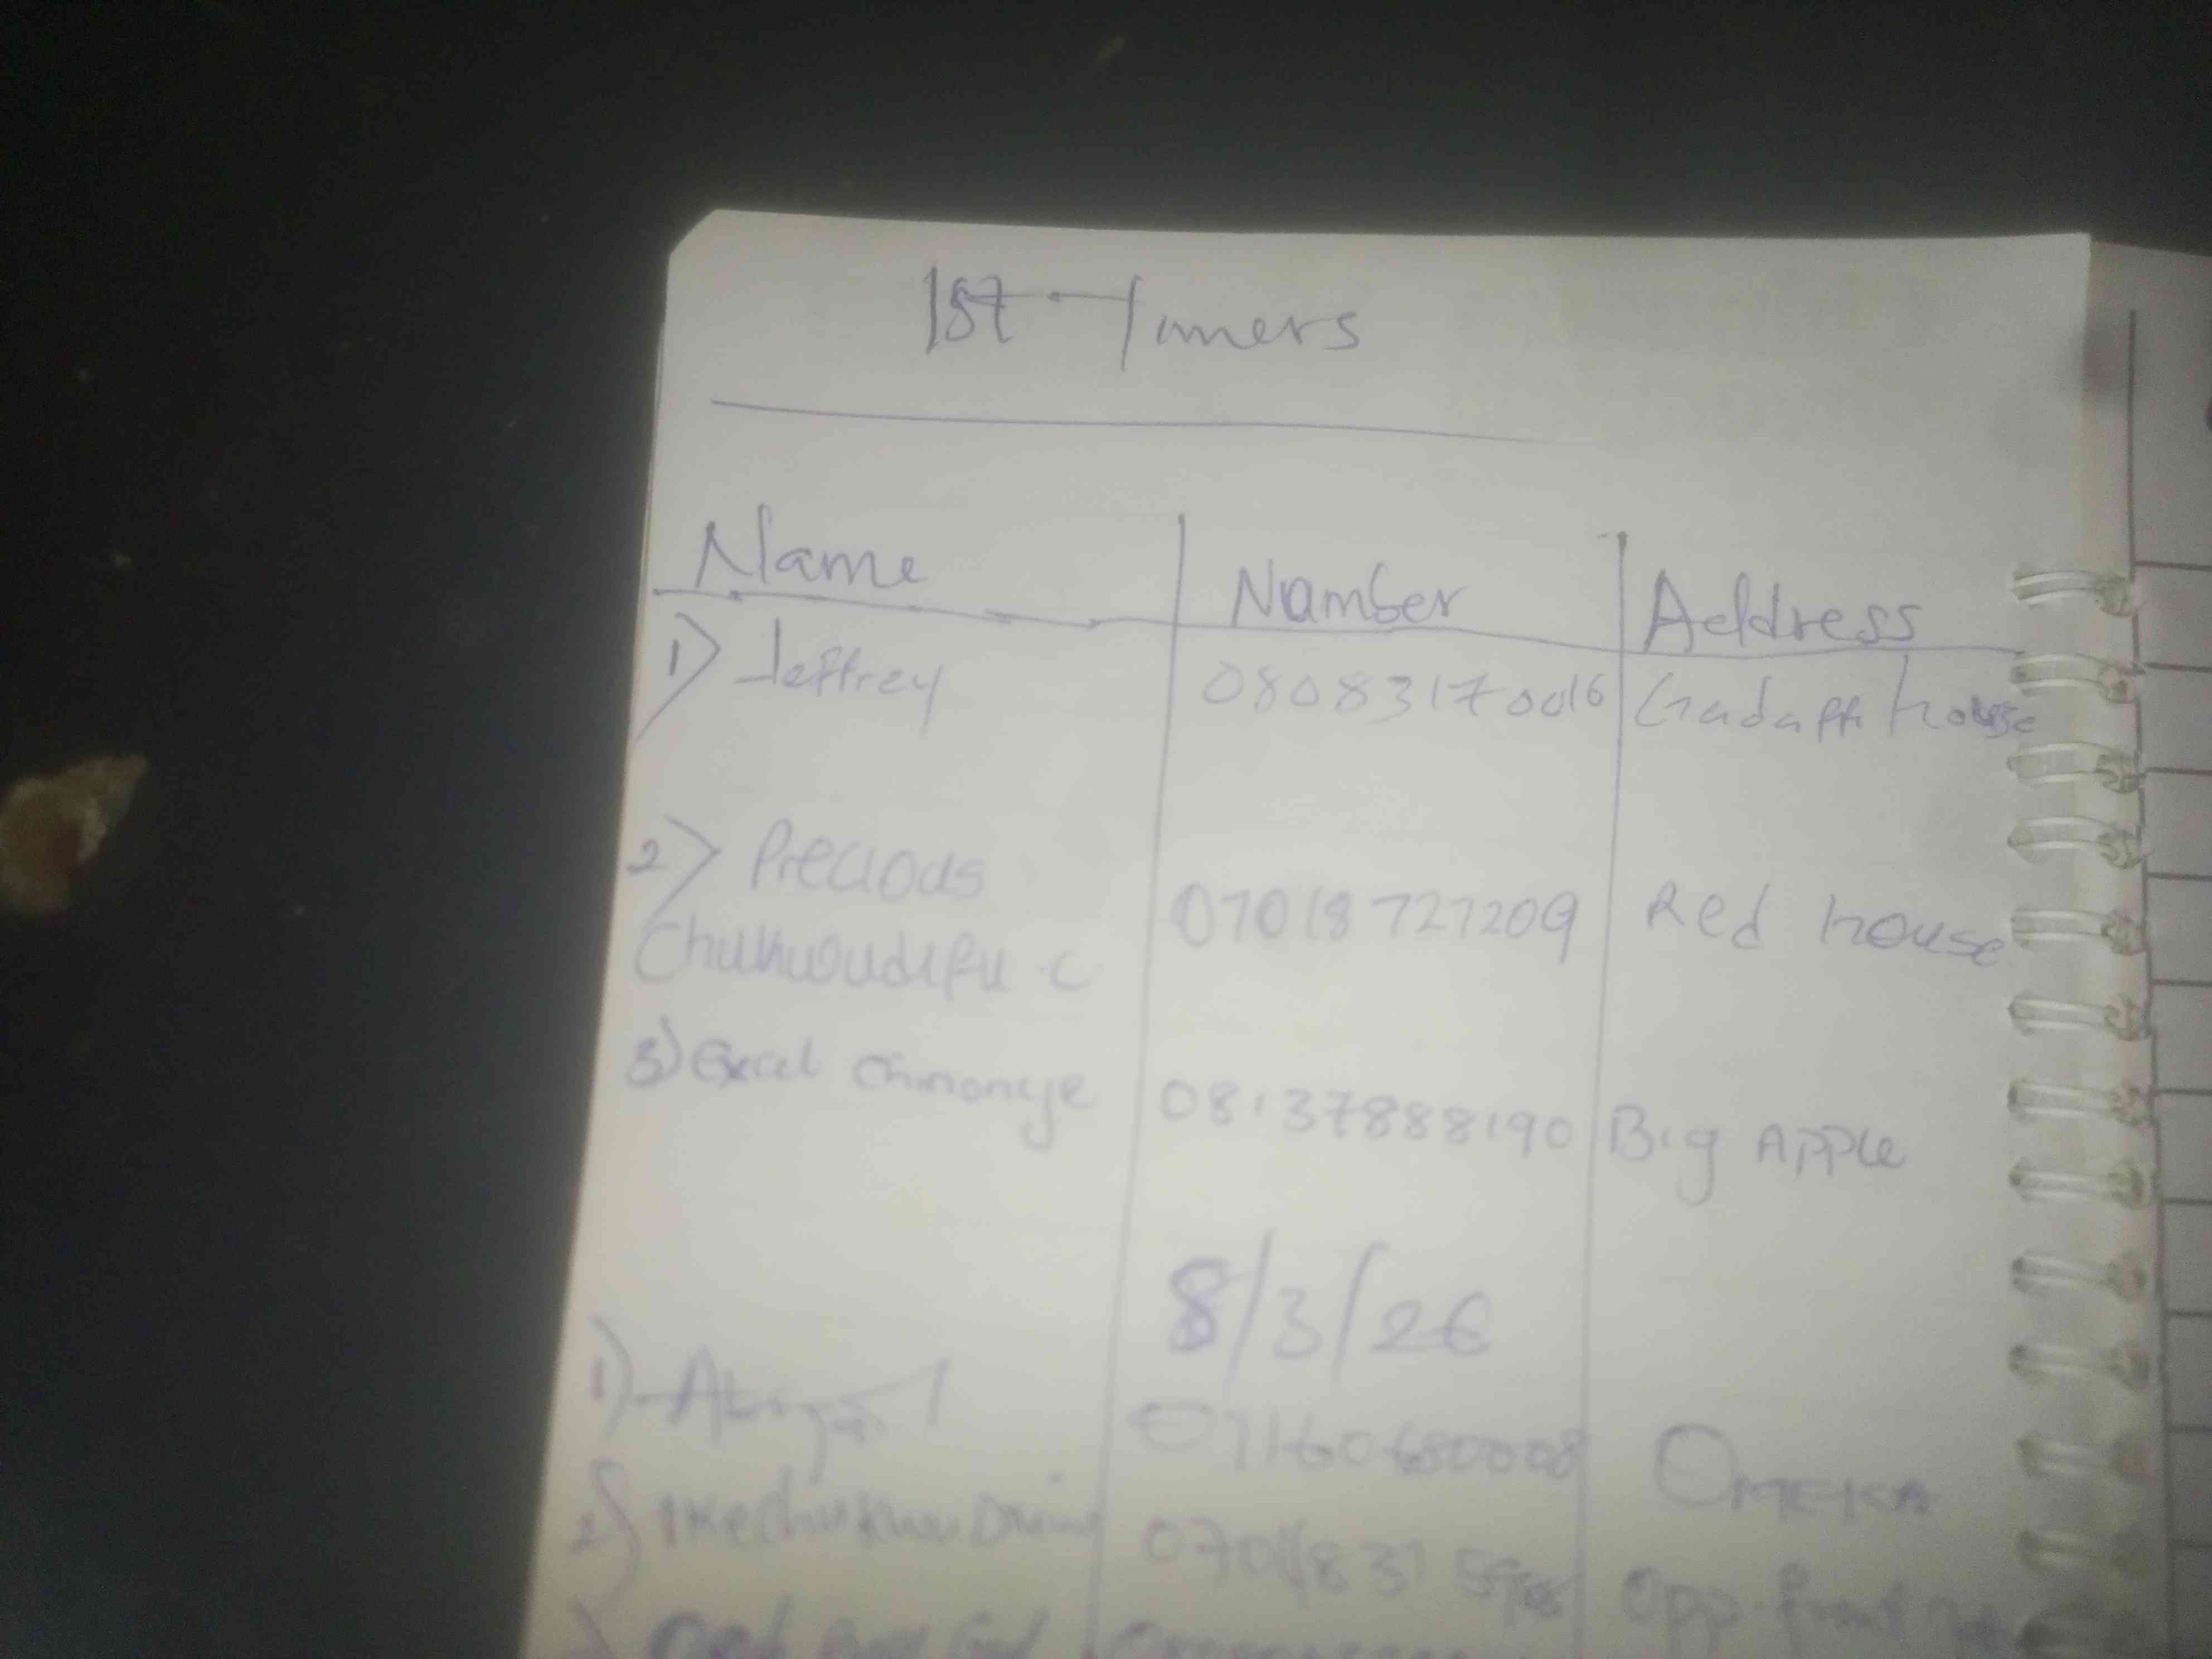 1st-Timers
Name Number Address
1) Jeffrey 08083170016 Gadaffi house
2) Precious
Chukwudifu - C 07018727209 Red house
3) Excel Chinonye 08137888190 Big Apple
8/3/26
1) 07160680008 OMEKA
2) Ikechukwu Divine Opp front